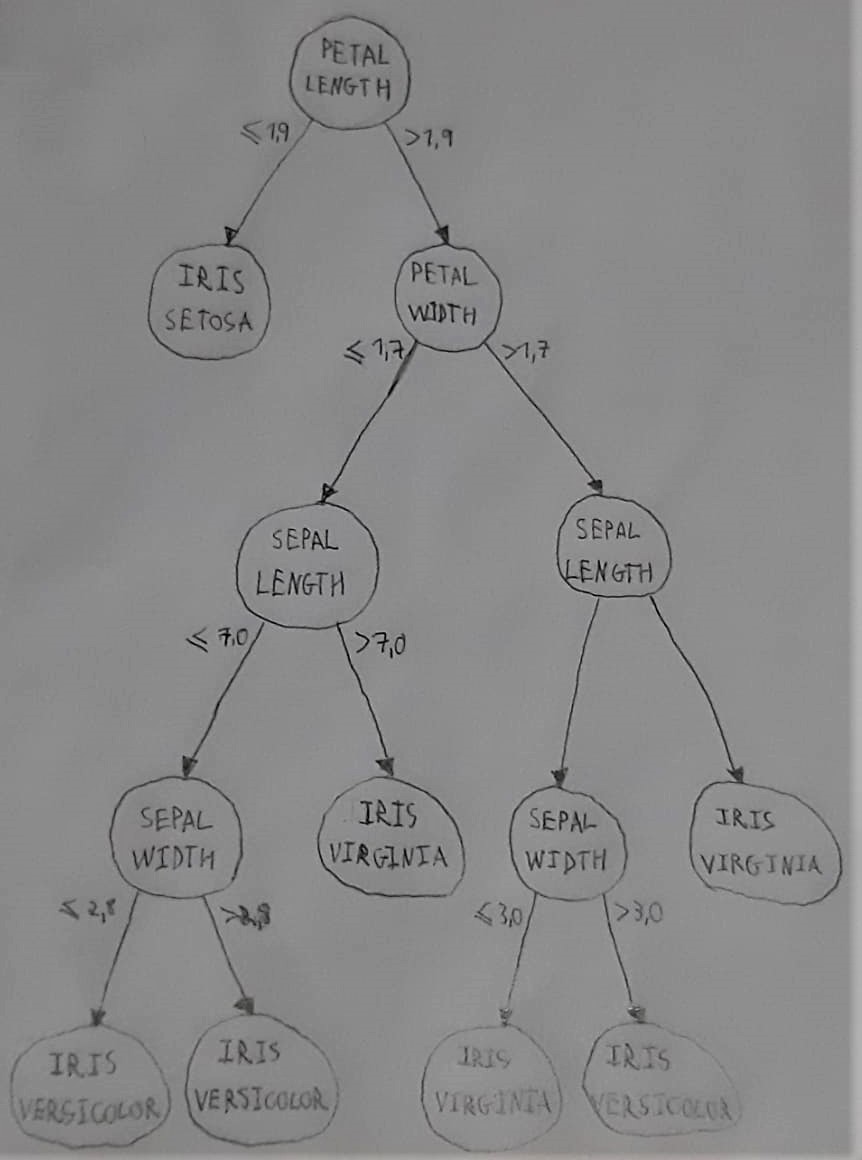 PETAL
LENGTH
≤ 1,9
>1,9
IRIS
SETOSA
PETAL
WIDTH
≤ 1,7
>1,7
SEPAL
LENGTH
SEPAL
LENGTH
≤ 7,0
>7,0
SEPAL
WIDTH
IRIS
VIRGINIA
SEPAL
WIDTH
IRIS
VIRGINIA
≤ 2,8
>2,8
≤3,0
>3,0
IRIS
VERSICOLOR
IRIS
VERSICOLOR
IRIS
VIRGINIA
IRIS
VERSICOLOR